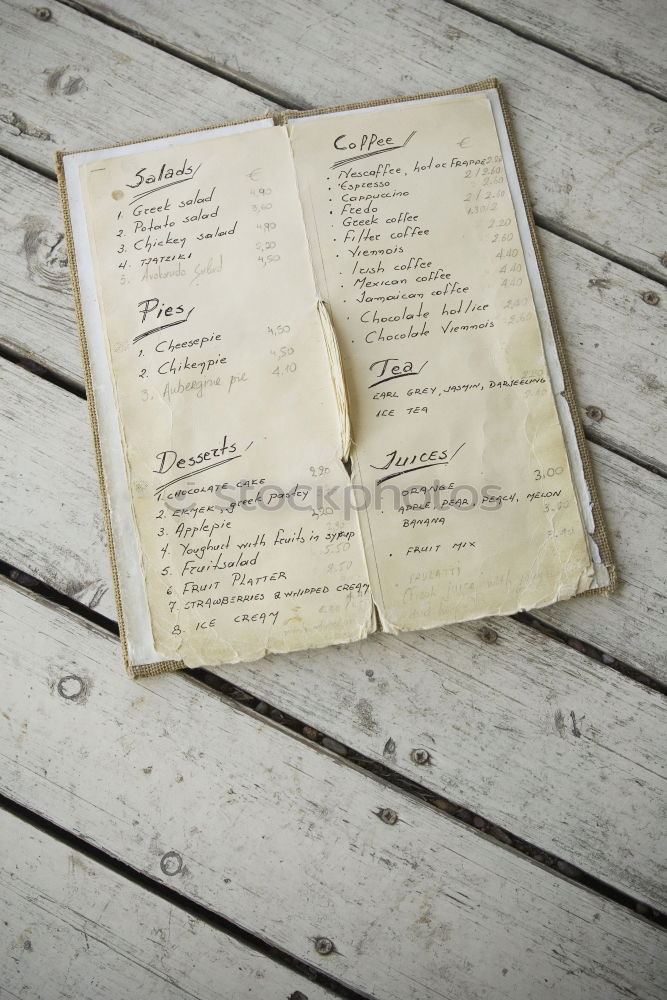 Salads
€
1. Greek salad 4,90
2. Potato salad 3,60
3. Chickey salad 4,90
4. TJATZIKI 2,20
5. Avokardo Salad 4,50
Pies
1. Cheesepie 4,50
2. Chikenpie 4,50
3. Aubergine pie 4.10
Desserts
1. CHOCOLATE CAKE 2,20
2. EKMEK, greek pastry
3. Applepie 2,20
4. Youghurt with fruits in syrup
5. Fruitsalad 5.50
6. FRUIT PLATTER 8.50
7. STRAWBERRIES & WHIPPED CREAM
8. ICE CREAM
Coffee
€
• Nescaffee, hot or FRAPPE 2.20
• Espresso 2 / 2.60
• Cappuccino 2.60
• Fredo 2 / 2.60
Greek coffee 1.30/2
• Filter coffee 2.20
• Viennois 2.60
• Irish coffee 4.40
• Mexican coffee 4.40
• Jamaican coffee 4.40
• Chocolate hot/ice 2.00
• Chocolate Viennois 2.60
Tea
EARL GREY, JASMIN, DARJEELING
ICE TEA
JUICES
• ORANGE 3,00
• APPLE, PEAR, PEACH, MELON
BANANA
• FRUIT MIX
stockphotos